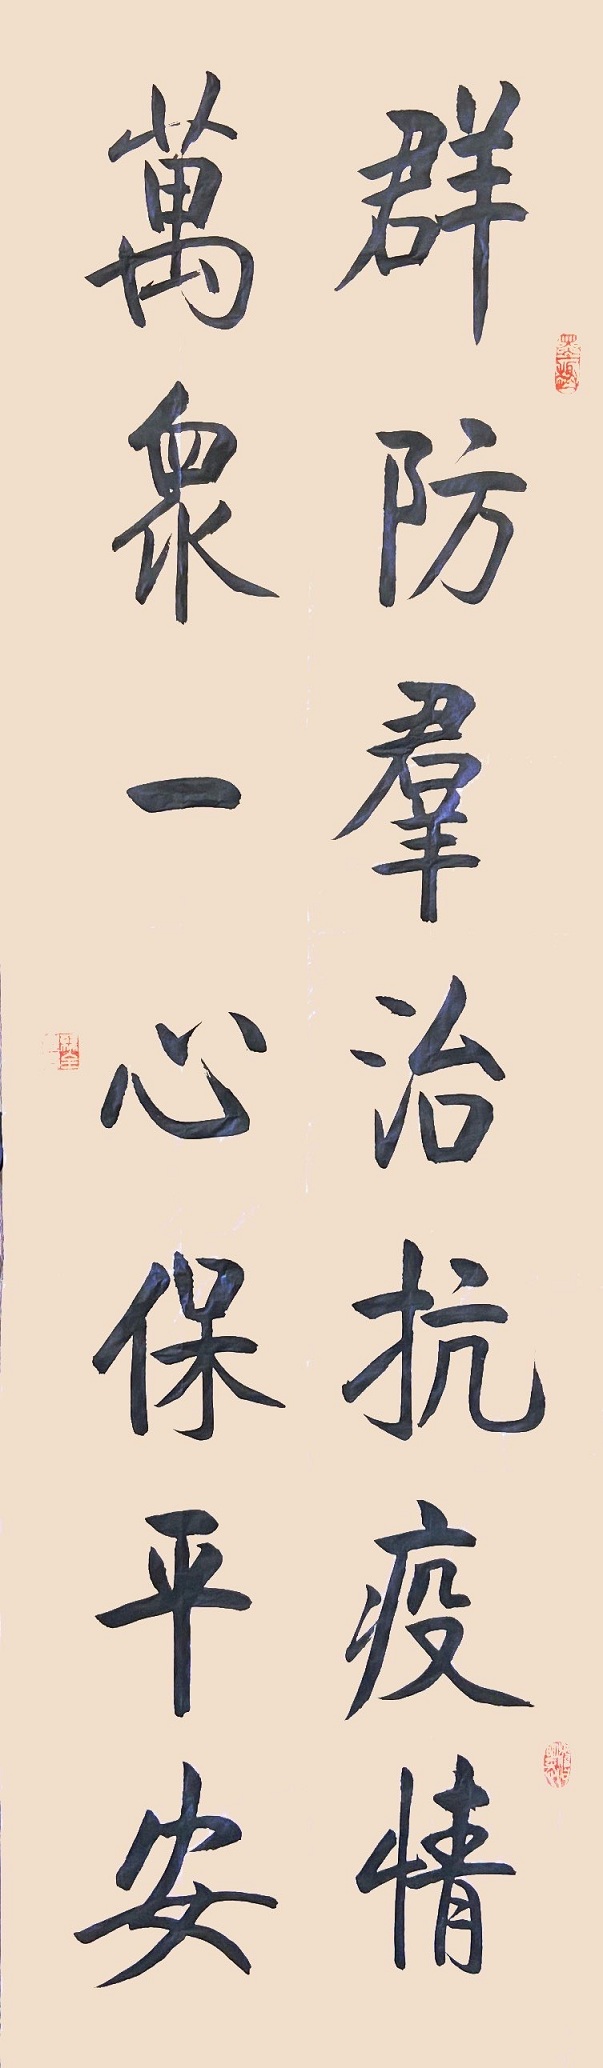 群防羣治抗疫情
萬眾一心保平安